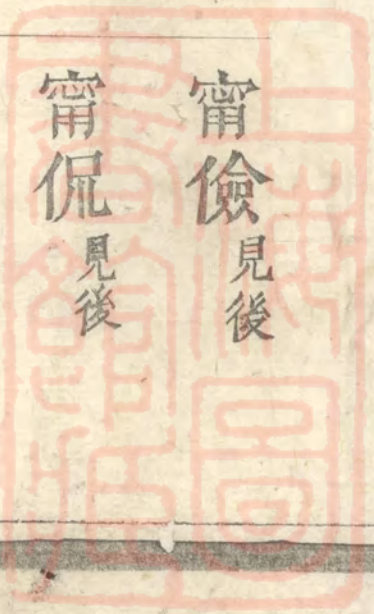 甯儉見後
甯侃見後